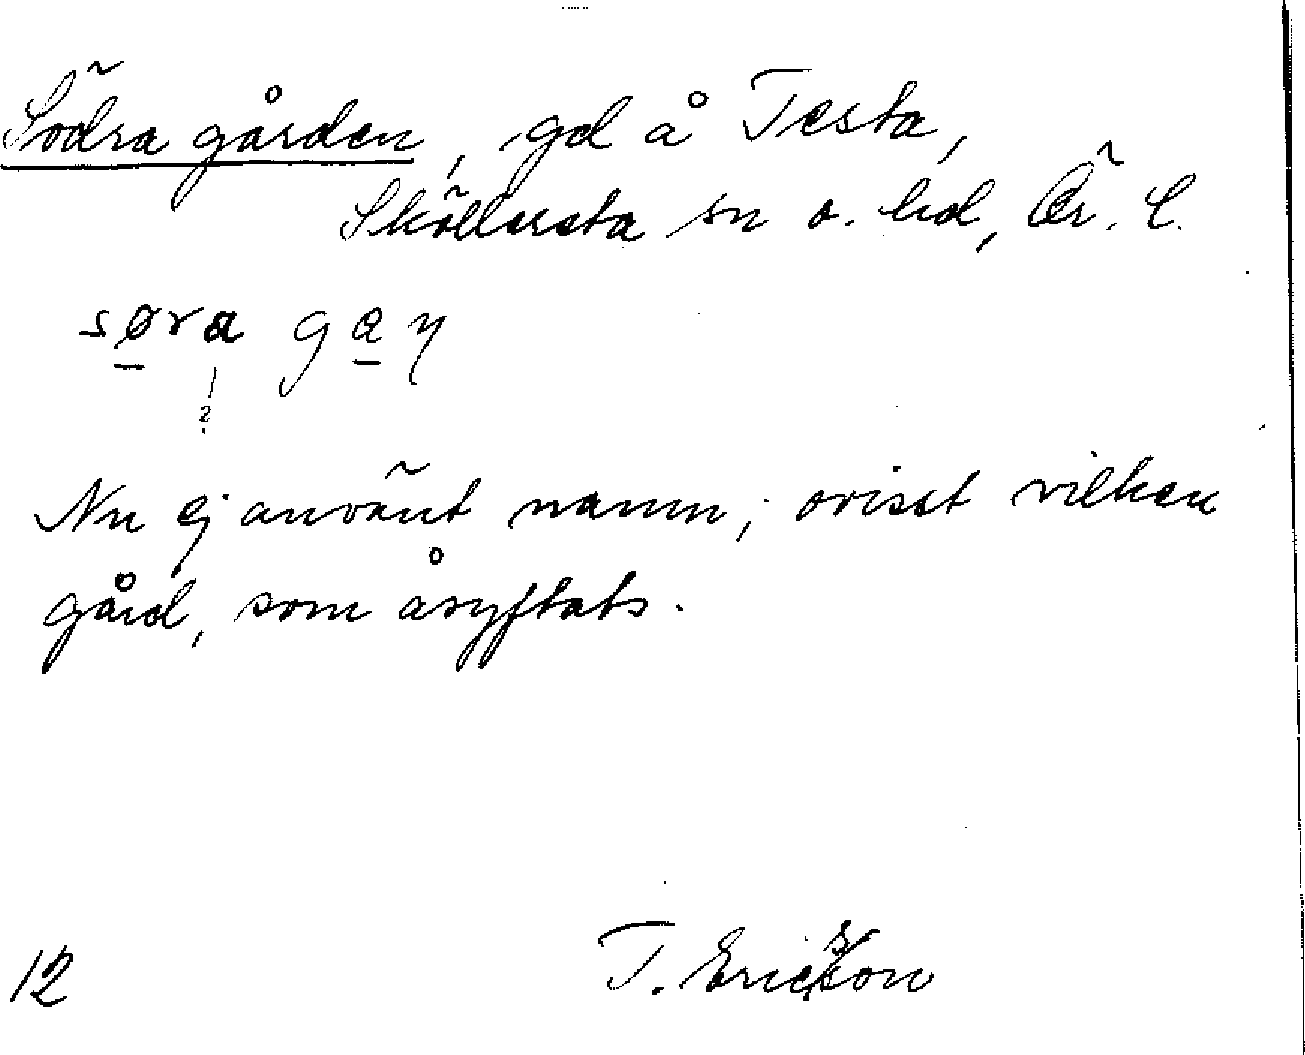 Södra gården, gd å Testa,
Sköllersta sn o. hd, Ör. l.
søra gaη
?
Nu ej använt namn; ovisst vilken
gård, som åsyftats.
12 T. Ericsson